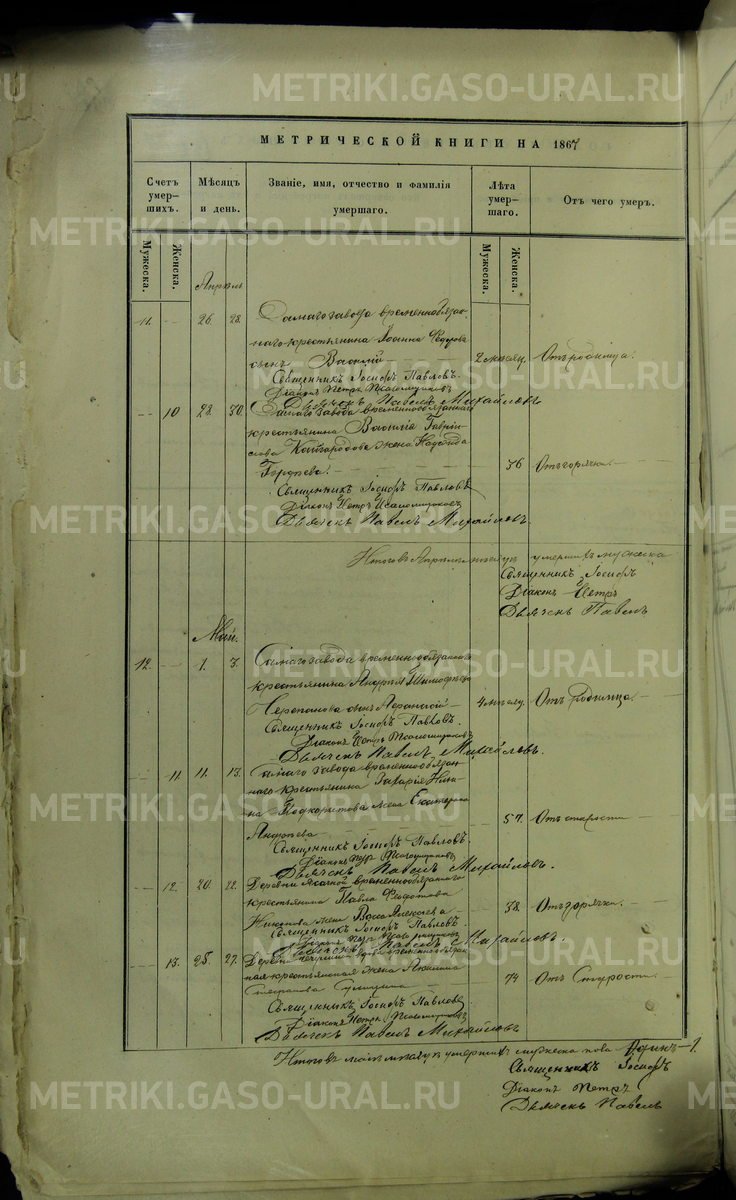 МЕТРИЧЕСКОЙ КНИГИ НА 1867
Счетъ умер-шихъ.
Мѣсяцъ и день.
Званіе, имя, отчество и фамилія умершаго.
Лѣта умер-шаго.
Отъ чего умеръ.
Мужеска.
Женска.
Мужеска.
Женска.
Апрѣль
11. 26. 28. Самаго завода временнообязан-
наго крестьянина Іоанна Федорова
сынъ Василій 2 мѣсяц. Отъ родимца.
Священникъ Іосифъ Павловъ.
Діаконъ Петръ
Дьячекъ Павелъ Михайловъ
10 28. 30. Самаго завода временнообязаннаго
крестьянина Василія Гаврі-
лова Кайгородова жена Надежда
36 Отъ горячки.
Священникъ Іосифъ Павловъ
Діаконъ Петръ
Дьячекъ Павелъ Михайловъ
Итого въ Апрѣлѣ мѣсяцѣ умершихъ мужеска
Священникъ Іосифъ
Діаконъ Петръ
Дьячекъ Павелъ
Май.
12. 1. 3. Самаго завода временнообязаннаго
крестьянина Андрея Тимофѣева
Черепанова сынъ Афанасій 4 мѣсяц. Отъ родимца.
Священникъ Іосифъ Павловъ.
Діаконъ Петръ
Дьячекъ Павелъ Михайловъ.
11. 11. 13. Самаго завода временнообязан-
наго крестьянина Захарія
жена Екатерина
57. Отъ старости
Священникъ Іосифъ Павловъ.
Діаконъ Петръ
Дьячекъ Павелъ Михайловъ.
12. 20. 22. Деревни временнообязаннаго
крестьянина Павла Федотова
Никонова жена Васса Алексѣева 38. Отъ горячки.
Священникъ Іосифъ Павловъ.
Діаконъ Петръ
Дьячекъ Павелъ Михайловъ.
13. 25. 27. Деревни временнообязан-
ная крестьянская жена Акилина
Степанова 74 Отъ Старости
Священникъ Іосифъ Павловъ
Діаконъ Петръ
Дьячекъ Павелъ Михайловъ
Итого въ маѣ мѣсяцѣ умершихъ мужеска пола Одинъ—1.
Священникъ Іосифъ
Діаконъ Петръ
Дьячекъ Павелъ
METRIKI.GASO-URAL.RU